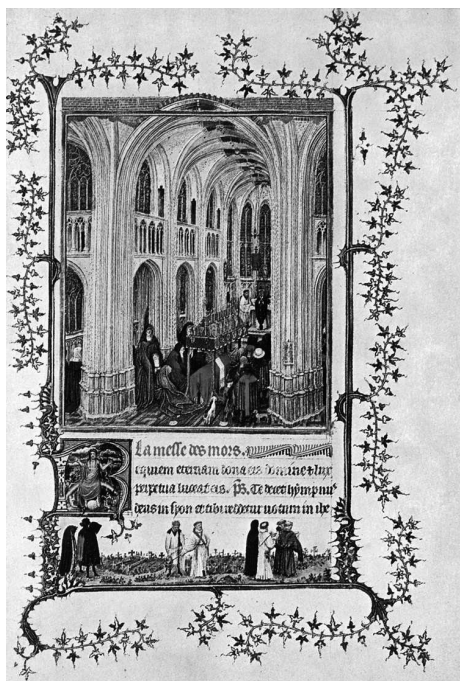 La messe des mors.
Requiem eternam dona eis domine & lux
perpetua luceat eis. Ps. Te decet hympnus
deus in syon et tibi reddetur votum in ihe